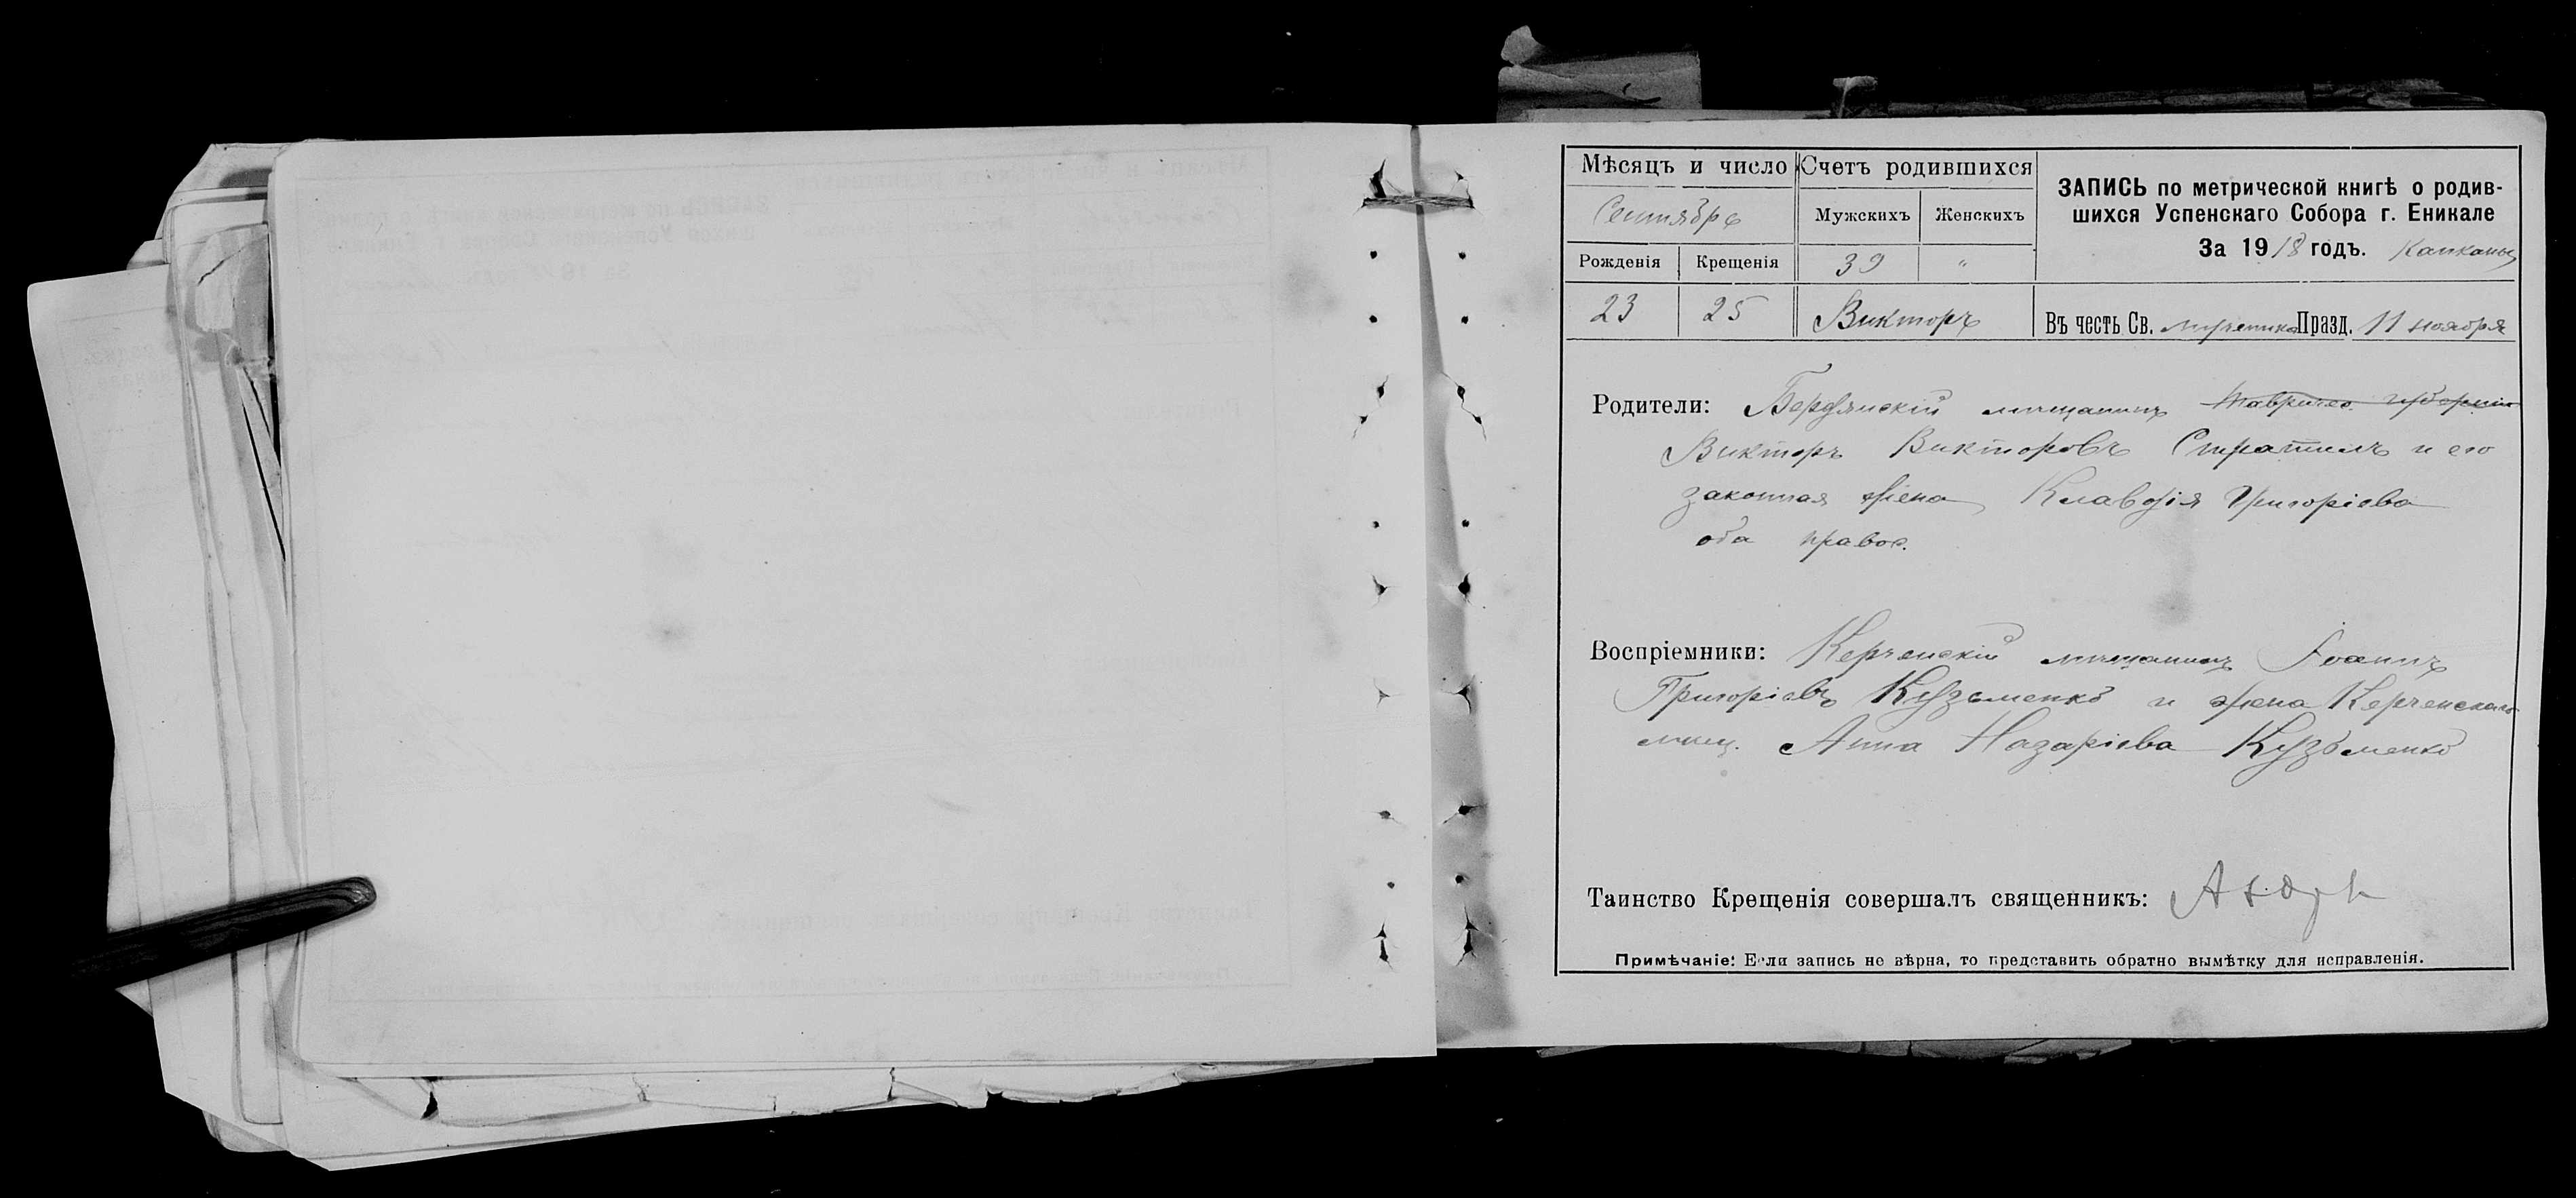 Мѣсяцъ и число
Счетъ родившихся
ЗАПИСЬ по метрической книгѣ о родив-
шихся Успенскаго Собора г. Еникале
За 1918 годъ. Капканы
Сентябрь
Мужскихъ
Женскихъ
Рожденія
Крещенія
39
"
23
25
Викторъ
Въ честь Св. мученика Празд. 11 ноября
Родители: Бердянскій мещанинъ Тавричес. губерніи
Викторъ Викторовъ Стратилъ и его
законная жена Клавдія Григоріева
оба правос.
Воспріемники: Керченскій мещанинъ Іоаннъ
Григоріевъ Кузьменко и жена Керченскаго
мещ. Анна Назаріева Кузьменко
Таинство Крещенія совершалъ священникъ:
Примѣчаніе: Если запись не вѣрна, то представить обратно вымѣтку для исправленія.